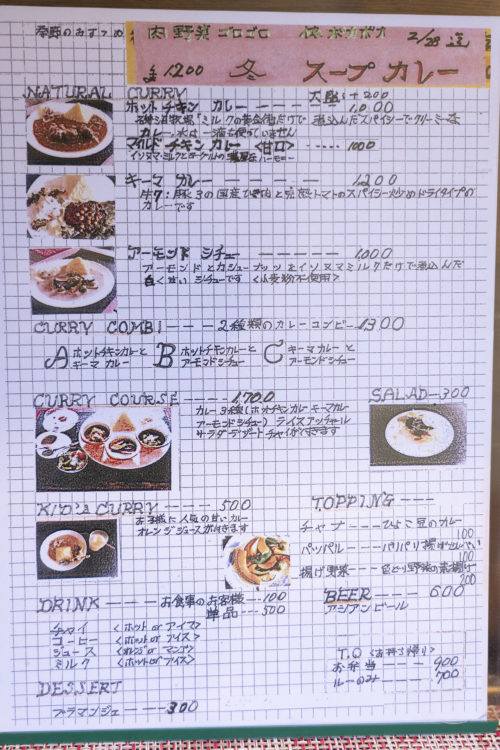 季節のおすすめ
肉 野菜 ゴロゴロ 体 ポカポカ 2/28迄
1200 冬 スープ カレー
NATURAL CURRY 大盛り+200
ホット チキン カレー ---- 1000
カレー 水は一滴も使っていません
マイルド チキン カレー <甘口> ---- 1000
イソヌマ・ミルクとヨーグルトの ハーモニー
キーマ カレー ------ 1200
牛7:豚3の国産ひき肉と完熟トマトのスパイシー炒めドライタイプの
カレーです
アーモンド シチュー ------ 1000
アーモンドとカシューナッツをイソヌマミルクだけで煮込んだ
白く甘い シチューです <小麦粉不使用>
CURRY COMBI ---- 2種類のカレー コンビ- 1300
A ホットチキンカレーと
キーマ カレー
B ホットチキンカレーと
アーモンドシチュー
C キーマカレーと
アーモンドシチュー
CURRY COURSE ---- 1700
カレー3種(ホットチキンカレー キーマカレー
アーモンドシチュー) ライス アッチャール
サラダ・デザート チャイが付きます
SALAD- 300
KID'S CURRY ------ 500
お子様に人気の甘いカレー
オレンジジュース付きます
TOPPING ----
チャナ ---- ひよこ豆のカレー
100
パッパル ---- パリパリ揚げせんべい
100
揚げ野菜 ---- 色どり野菜の素揚げ
200
DRINK ---- お食事のお客様 --- 100
単品 --- 500
チャイ <ホット or アイス>
コーヒー <ホット or アイス>
ジュース <オレンジ or マンゴ>
ミルク <ホット or アイス>
BEER ---- 600
アジアンビール
T.O <お持ち帰り>
お弁当 ---- 900
ルーのみ ---- 700
DESSERT
ブラマンジェ --- 300